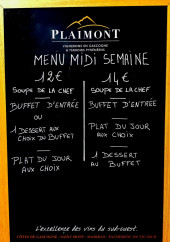 PLAIMONT
VIGNERONS EN GASCOGNE
& TERROIRS PYRÉNÉENS
MENU MIDI SEMAINE
12€
SOUPE DE LA CHEF
BUFFET D'ENTRÉE
OU
1 DESSERT AUX
CHOIX DU BUFFET
PLAT DU JOUR
AUX CHOIX
14€
SOUPE DE LA CHEF
BUFFET D'ENTRÉE
PLAT DU JOUR
AUX CHOIX
1 DESSERT
AU BUFFET
L'excellence des vins du sud-ouest.